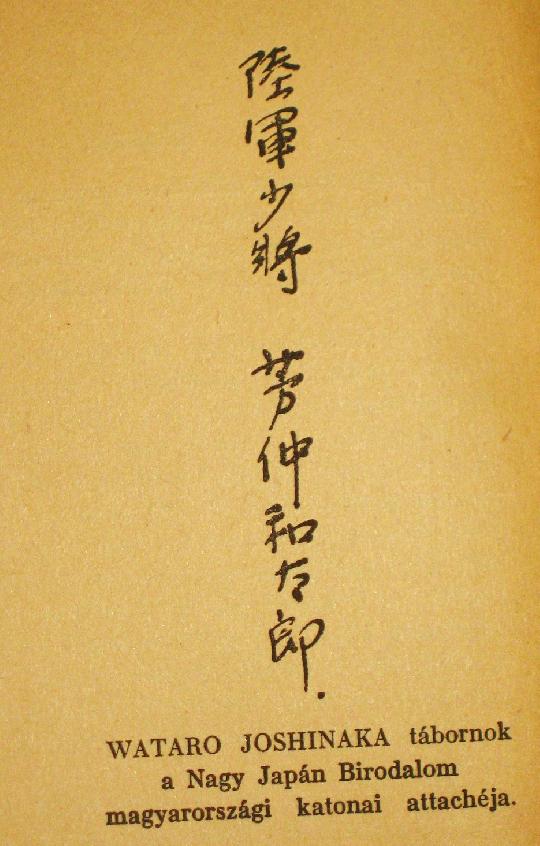 陸軍少將 芳仲和太郎.
WATARO JOSHINAKA tábornok
a Nagy Japán Birodalom
magyarországi katonai attachéja.